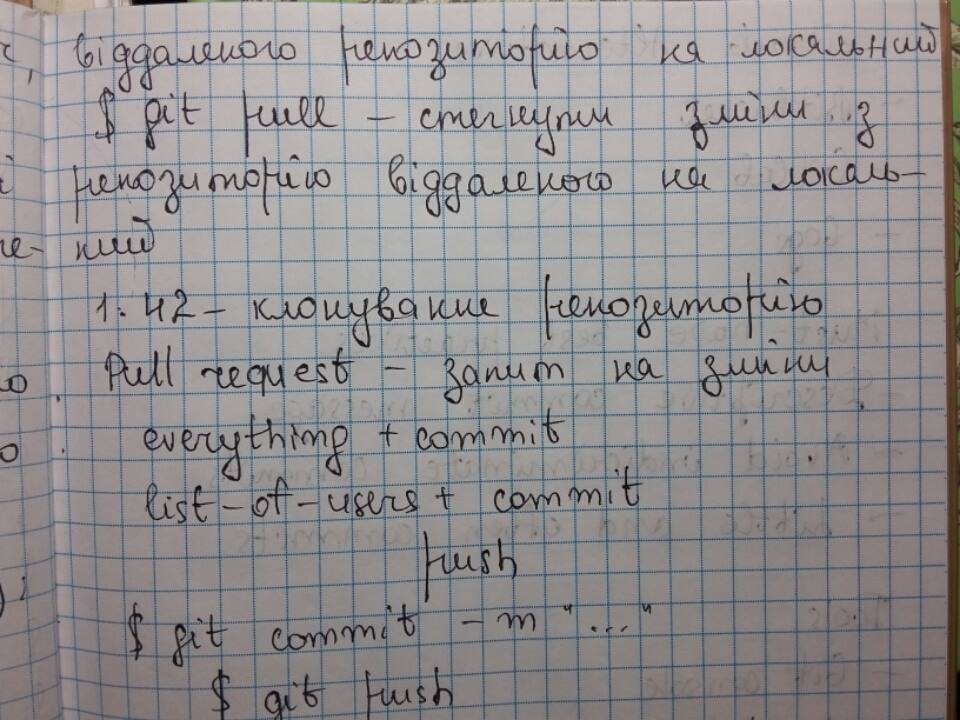 віддаленого репозиторію на локальний
$ git pull – стягнути зміни з
репозиторію віддаленого на локаль-
ний
1:42 – клонування репозиторію
Pull request – запит на зміни
everything + commit
list-of-users + commit
push
$ git commit -m "..."
$ git push